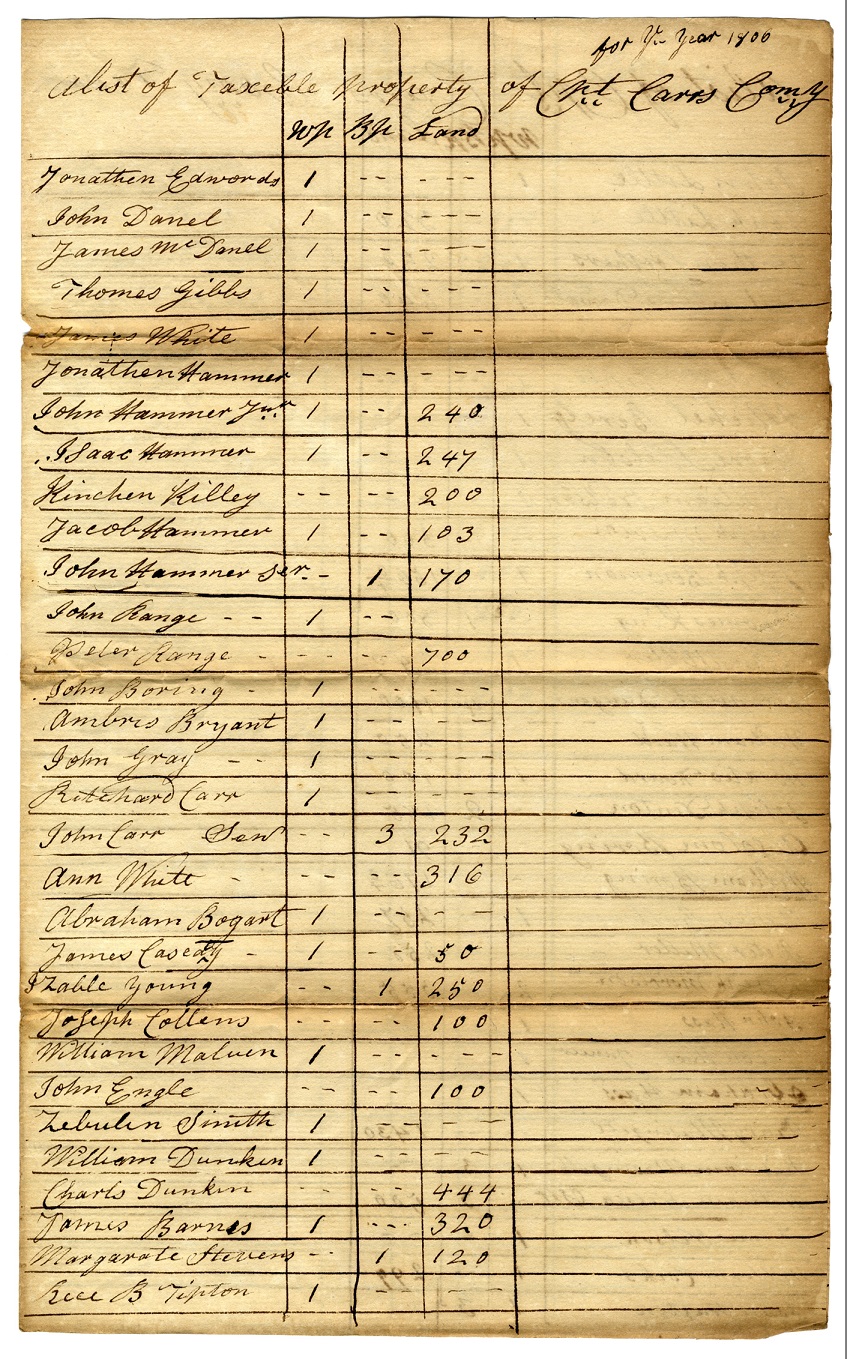 for Ye Year 1806
A list of Taxeble Property of Cpt Carrs Comy
WP BP Land
Jonathen Edwords 1 -- ---
John Danel 1 -- ---
James Mc Danel 1 -- ---
Thomes Gibbs 1 -- ---
James White 1 -- ---
Jonathen Hammer 1 -- ---
John Hammer Junr 1 -- 240
Isaac Hammer 1 -- 247
Kinchen Killey -- -- 200
Jacob Hammer 1 -- 103
John Hammer Ser -- 1 170
John Range -- 1 --
Peter Range - -- -- 700
John Boring - 1 -- ---
Ambris Bryant 1 -- ---
John Gray -- 1 -- ---
Ritchard Carr 1 -- ---
John Carr Senr -- 3 232
Ann White - -- -- 316
Abraham Bogart 1 -- ---
James Casedy - 1 -- 50
Izable Young -- 1 250
Joseph Collens -- -- 100
William Malven 1 -- ---
John Engle -- -- 100
Zebulen Smith 1 -- --
William Dunken 1 -- ---
Charls Dunken -- -- 444
James Barnes 1 --- 320
Margarate Stevens -- 1 120
Rece B Tipton 1 - ---